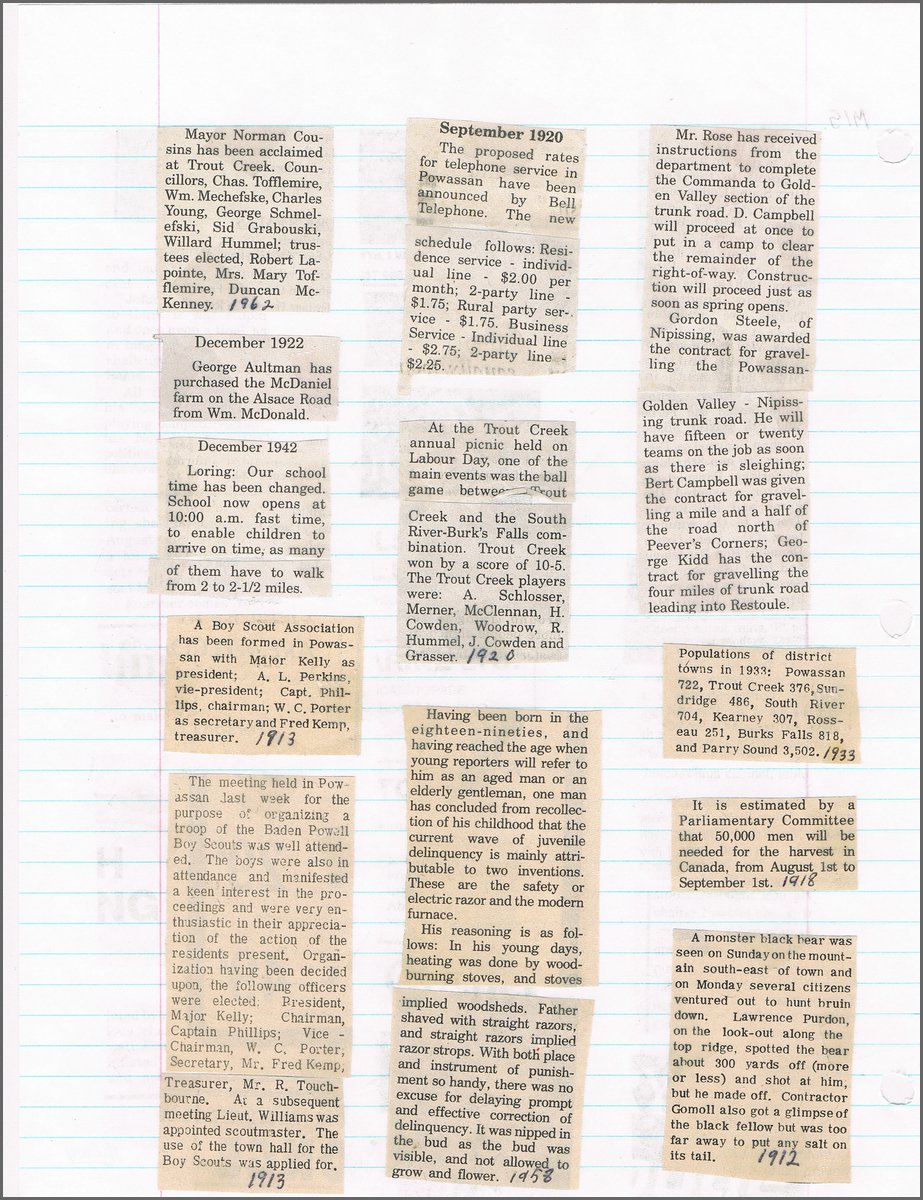 Mayor Norman Cou-
sins has been acclaimed
at Trout Creek. Coun-
cillors, Chas. Tofflemire,
Wm. Mechefske, Charles
Young, George Schmel-
efski, Sid Grabouski,
Willard Hummel; trus-
tees elected, Robert La-
pointe, Mrs. Mary Tof-
flemire, Duncan Mc-
Kenney. 1962
December 1922
George Aultman has
purchased the McDaniel
farm on the Alsace Road
from Wm. McDonald.
December 1942
Loring: Our school
time has been changed.
School now opens at
10:00 a.m. fast time,
to enable children to
arrive on time, as many
of them have to walk
from 2 to 2-1/2 miles.
A Boy Scout Association
has been formed in Powas-
san with Major Kelly as
president; A. L. Perkins,
vie-president; Capt. Phil-
lips, chairman; W. C. Porter
as secretary and Fred Kemp,
treasurer. 1913
The meeting held in Pow-
assan last week for the
purpose of organizing a
troop of the Baden Powell
Boy Scouts was well attend-
ed. The boys were also in
attendance and manifested
a keen interest in the pro-
ceedings and were very en-
thusiastic in their apprecia-
tion of the action of the
residents present. Organ-
ization having been decided
upon, the following officers
were elected: President,
Major Kelly; Chairman,
Captain Phillips; Vice -
Chairman, W. C. Porter,
Secretary, Mr. Fred Kemp,
Treasurer, Mr. R. Touch-
bourne. At a subsequent
meeting Lieut. Williams was
appointed scoutmaster. The
use of the town hall for the
Boy Scouts was applied for.
1913
September 1920
The proposed rates
for telephone service in
Powassan have been
announced by Bell
Telephone. The new
schedule follows: Resi-
dence service - individ-
ual line - $2.00 per
month; 2-party line -
$1.75; Rural party ser-
vice - $1.75. Business
Service - Individual line
- $2.75; 2-party line -
$2.25.
At the Trout Creek
annual picnic held on
Labour Day, one of the
main events was the ball
game between Trout
Creek and the South
River-Burk's Falls com-
bination. Trout Creek
won by a score of 10-5.
The Trout Creek players
were: A. Schlosser,
Merner, McClennan, H.
Cowden, Woodrow, R.
Hummel, J. Cowden and
Grasser. 1920
Having been born in the
eighteen-nineties, and
having reached the age when
young reporters will refer to
him as an aged man or an
elderly gentleman, one man
has concluded from recollec-
tion of his childhood that the
current wave of juvenile
delinquency is mainly attri-
butable to two inventions.
These are the safety or
electric razor and the modern
furnace.
His reasoning is as fol-
lows: In his young days,
heating was done by wood-
burning stoves, and stoves
implied woodsheds. Father
shaved with straight razors,
and straight razors implied
razor strops. With both place
and instrument of punish-
ment so handy, there was no
excuse for delaying prompt
and effective correction of
delinquency. It was nipped in
the bud as the bud was
visible, and not allowed to
grow and flower. 1958
Mr. Rose has received
instructions from the
department to complete
the Commanda to Gold-
en Valley section of the
trunk road. D. Campbell
will proceed at once to
put in a camp to clear
the remainder of the
right-of-way. Construc-
tion will proceed just as
soon as spring opens.
Gordon Steele, of
Nipissing, was awarded
the contract for gravel-
ling the Powassan-
Golden Valley - Nipiss-
ing trunk road. He will
have fifteen or twenty
teams on the job as soon
as there is sleighing;
Bert Campbell was given
the contract for gravel-
ling a mile and a half of
the road north of
Peever's Corners; Geo-
rge Kidd has the con-
tract for gravelling the
four miles of trunk road
leading into Restoule.
Populations of district
towns in 1933: Powassan
722, Trout Creek 376, Sun-
dridge 486, South River
704, Kearney 307, Ross-
eau 251, Burks Falls 818,
and Parry Sound 3,502. 1933
It is estimated by a
Parliamentary Committee
that 50,000 men will be
needed for the harvest in
Canada, from August 1st to
September 1st. 1918
A monster black bear was
seen on Sunday on the mount-
ain south-east of town and
on Monday several citizens
ventured out to hunt bruin
down. Lawrence Purdon,
on the look-out along the
top ridge, spotted the bear
about 300 yards off (more
or less) and shot at him,
but he made off. Contractor
Gomoll also got a glimpse of
the black fellow but was too
far away to put any salt on
its tail. 1912